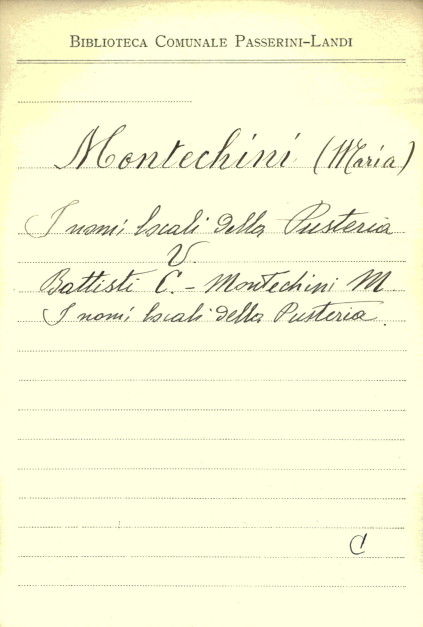 BIBLIOTECA COMUNALE PASSERINI-LANDI
Montechini (Maria)
I nomi locali della Pusteria
V.
Battisti C. - Montechini M.
I nomi locali della Pusteria.
C